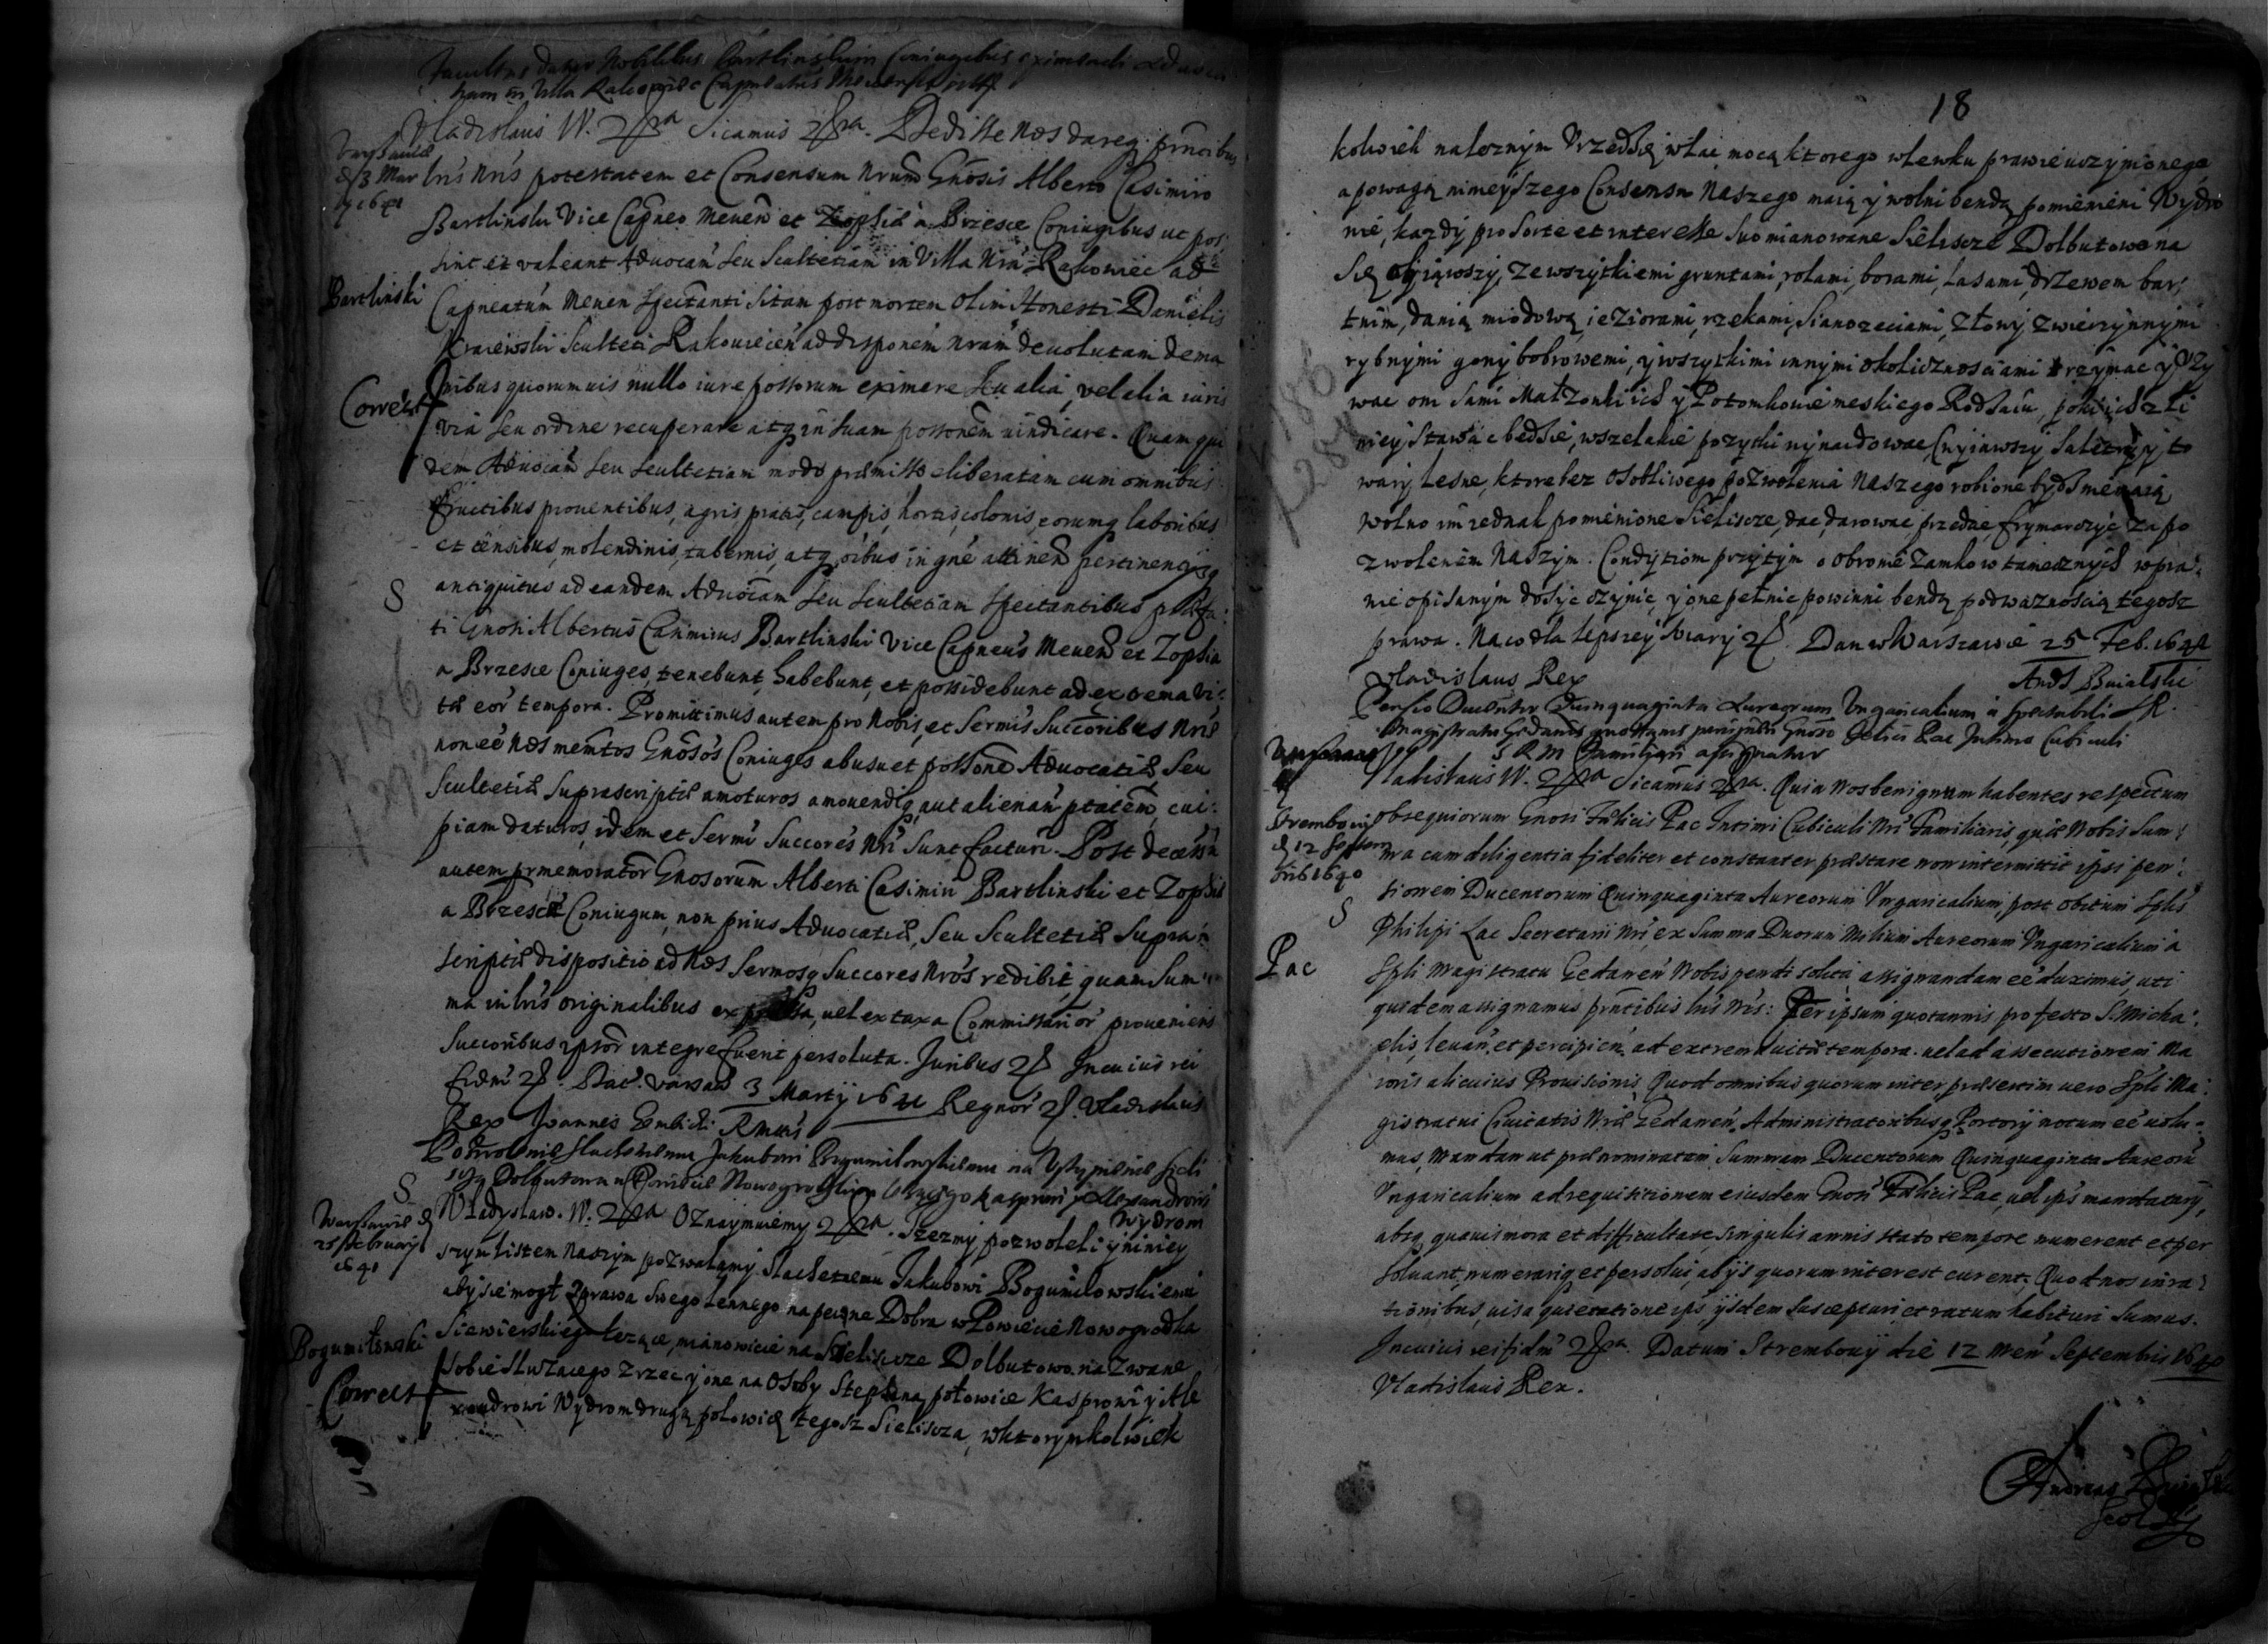 Facultas datur Nobilibus Bartlinskim Coniugibus eximendi Advoca
tiam in Villa Rakowiec Capneatus Mevensis
Vladislaus IV. Sicamus. Dedisse Nos dareq. pñtibus
Varsaviæ
d 3 Mar
1641
lris nris potestatem et Consensum Nrum Gnosis Alberto Casimiro
Bartlinski Vice Capneo Meuen et Zophiæ a Brzesce Coniugibus ut pos
sint et valeant Aduocam seu Scultetiam in Villa Nra Rakowiec ad
Bartlinski
Capneatum Meuen spectanti sitam post mortem olim Honesti Danielis
Kraiewski Sculteti Rakouiecen ad disponem nram deuolutam de ma
Correct
nibus quorumuis nullo iure possorum eximere seu alia, vel alia iuris
via seu ordine recuperare atq in suam possonem uindicare. Quam qui
dem Aduocam seu scultetiam modo præmisso eliberatam cum omnibus
fructibus prouentibus, agris, pratis, campis, hortis, colonis, eorumq laboribus
et censibus, molendinis, tabernis, atq oibus in gne attinen pertinencijsq
S
antiquitus ad eandem Aduocam seu scultetiam spectantibus præfa:
ti Gnosi Albertus Casimirus Bartlinski Vice Capneus Meuen et Zophia
a Brzesce Coniuges, tenebunt, habebunt, et possidebunt ad extrema vi:
tæ eor tempora. Promittimus autem pro Nobis, et Sermis Succoribus Nris
non eé Nos memtos Gnosos Coniuges ab usu et possone Aduocatiæ seu
Scultetiæ suprascriptæ amoturos amouendiq, aut alienam ptatem, cui:
piam daturos, idem et Sermi Succores Nri sunt facturi. Post decessu
autem prmemorator Gnosorum Alberti Casimiri Bartlinski et Zophiæ
a Brzesce Coniugum, non prius Aduocatiæ, seu Scultetiæ supra
scriptæ dispositio ad Nos Sermosq Succores Nros redibit, quam sum
ma in lris originalibus expressa, uel ex taxa Commissarior proueniens
Succoribus ipsor integre fuerit persoluta. Juribus In cuius rei
fidem. Dat. Varsav 3 Martij 1641 Regnor. Vladislaus
Rex Joannes Gembicki
Pozwolenie Slachetnemu Jakubowi Bogumilowskiemu na Ustąpienie sieli
S
Wladyslaw. IV. Oznaymuiemy. Iżezmy pozwoleli y niniey
Wydrom
Warsaviæ d
25 Februarij
1641
szym listem Naszym pozwalamy Slachetnemu Jakubowi Bogumilowskiemu
aby sie mogł zprawa swego lennego na pewne Dobra w Powiecie Nowogrodka
Bogumiłowski
Siewierskiego leząca, mianowicie na Sieliscze Dolbutowo nazwane
Correct
sobie służacego zrzec y one na Osoby Stephana połowice Kasprowi y Ale
xandrowi Wydrom drugą połowicę tegosz Sieliscza, w ktorymkolwiek
18
kolwiek nalezným Vrzedzie wlac mocą ktorego wlewku prawie uczynionego
a powagą nineyszego Consensu Naszego maią y wolni bendą pomienieni Wydro
nie, kazdy pro sorte et interesse suo mianowane Sieliscze Dolbutowo na
Się obiąwszy, ze wszytkiemi gruntami, rolami, borami, lasami, drzewem bar,
tnim, danią miodową, ieziorami, rzekami, Sianozeciami, z łowy zwierzynnymi
rybnymi gony bobrowemi, y wszytkimi innymi okolicznosciami trzymac y vzy
wac oni sami Małzonki ich y Potomkowie meskiego Rodzaiu, poki ich z li
niey stawac bedzie, wszelakie pozytki wynaydowac, (wyiawszy Saletry y to
wary Lesne, ktore bez osobliwego pozwolenia Naszego robione bydz nie maią
wolno im iednak pomienione Sieliscze, dac, darowac, przedac, frymarczyc za po
zwolenem Naszym. Condytiom przytym o obronie Zamkow tamecznych w pra:
wie opisanym dosyc czynic, y one pełnic powinni bendą pod waznoscią tegosz
prawa. Na co dla lepszey wiary. Dan w Warszawie 25 Feb. 1641
Vladislaus Rex
And Buialski
Pensio Ducentor Quinquaginta Aureorum Vngaricalium a spectabili
Magistratu Gedanen quotannis Gnoso Felici Pac Intimo Cubiculi
S R M Familiari assignatur
Vladislaus IV. Sicamus. Quia Nos benignum habentes respectum
Strembouij
d 12 Septem
bris 1640
obsequiorum Gnosi Fælicis Pac Intimi Cubiculi Nri Familiaris, quæ Nobis sum:
ma cum diligentia fideliter et constanter præstare non intermittit ipsi pen:
sionem Ducentorum Quinquaginta Aureorum Vngaricalium, post obitum Splis
S
Philipi Lac Secretarij Nri, ex Summa Duorum Milium Aureorum Vngaricalium a
Pac
Spli Magistratu Gedanen Nobis pendi solita, assignandam eé duximus, uti
quidem assignamus pntibus lris Nris: Per ipsum quotannis pro festo S. Micha:
elis, leuan, et percipien ad extrema uitæ tempora. uel ad assecutionem Ma
ioris alicuius Prouisionis. Quod omnibus quorum inter. præsertim uero Spli Ma:
gistratui Ciuitatis Nræ Gedanen. Administratoribusq Portorij notum eé uolu:
mus, Mandan ut prænominatam Summam Ducentorum Quinquaginta Aureoru
Vngaricalium ad requisitionem eiusdem Gnosi Fælicis Pac, uel ips mandatarij,
absq quauis mora et difficultate, singulis annis stato tempore numerent et per
soluant, numerariq et persolui, ab ijs quorum interest curent. Quod nos in ra:
tionibus, uisa quietatione ips, ijsdem suscepturi, et ratum habituri sumus.
In cuius rei fidem. Datum Strembouij die 12 Men Septembris 1640
Vladislaus Rex.
Andreas